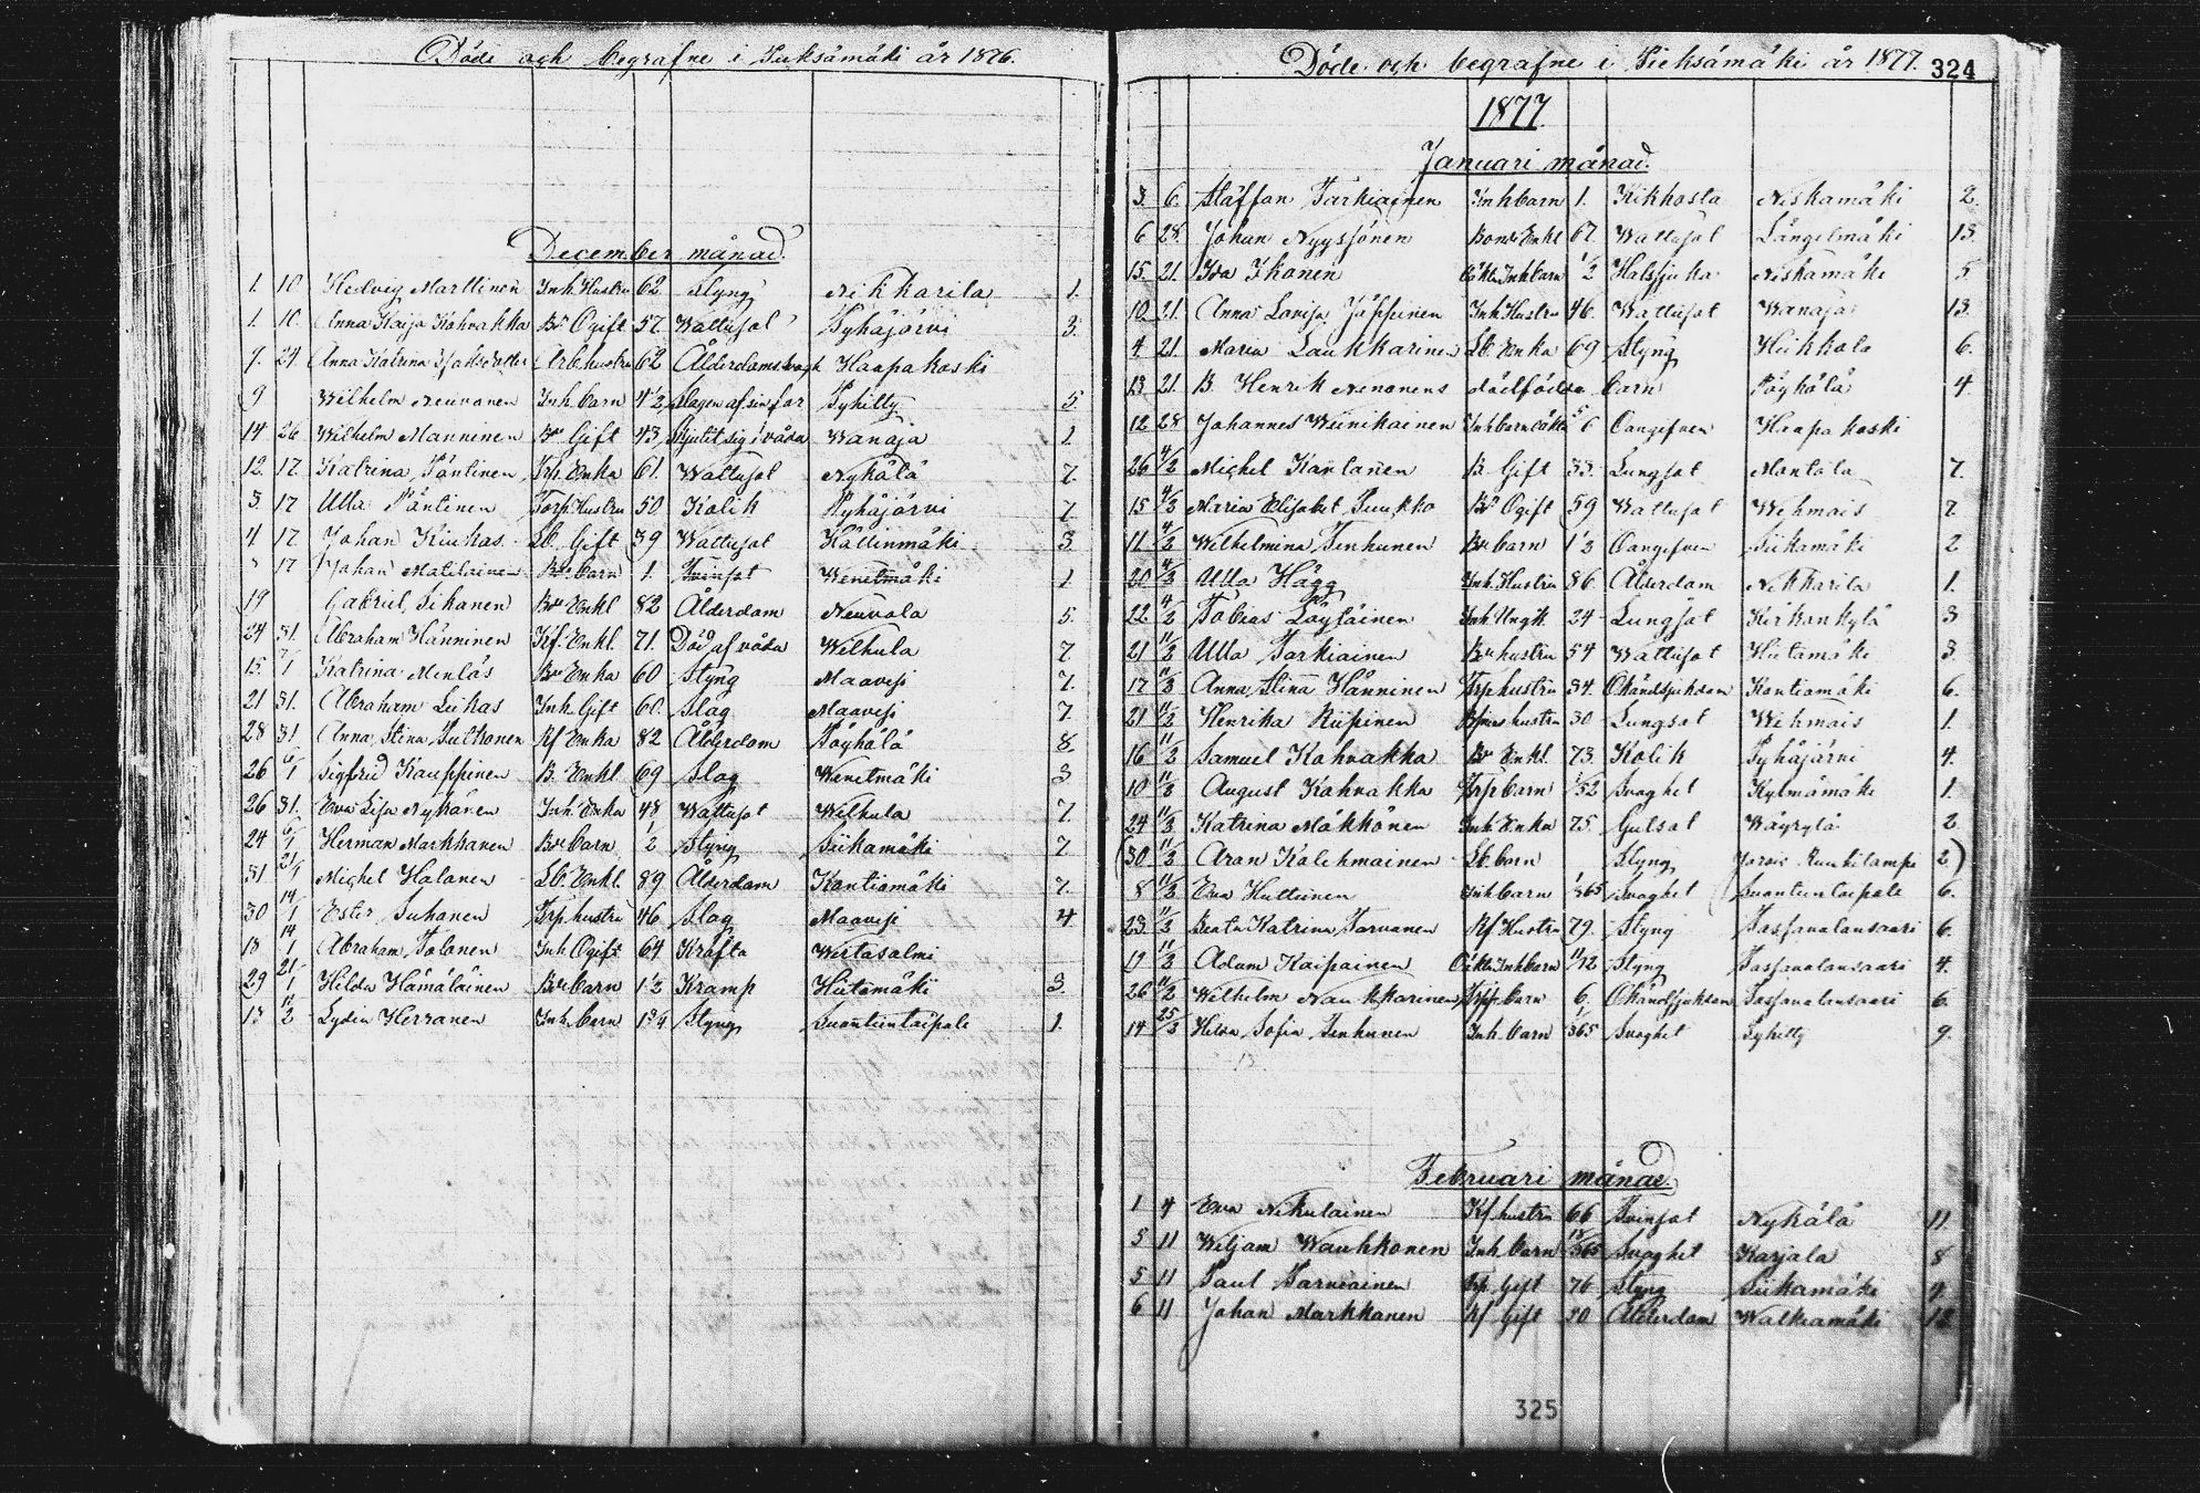 Döde och begrafne i Pieksämäki år 1876.
December månad.
1. 10 Hedvig Marttinen Inh. Hustru 62 Styng Nikkarila 1.
1. 10. Anna Kaija Kahvakka Bdr Ogift 57. Wattusot Pyhäjärvi 3.
9. 24. Anna Katrina Arb. hustru 62 Ålderdoms Haapakoski
9 Wilhelm Neuvonen Inh. barn 4 1/2 slagen af sin far Pyhitty 5.
14 26 Wilhelm Manninen Bdr Gift 43 skjutit sig i våda Wanaja 1
12. 17. Katrina Päntinen Trp. Enka 61. Wattusot Nykälä 7.
3. 17 Ulla Päntinen Torp. Hustru 50 Kolik Pyhäjärvi 7
4 17 Johan Kiukas Lb. Gift 39 Wattusot Hällinmäki 3.
17 Johan Matilainen Bdr. barn 1. Tvinsot Wenetmäki 1
19 Gabriel Sikanen Bdr Enkl 82 Ålderdom Neuvola 5.
24 31. Abraham Hänninen Kf. Enkl. 71. Död af våda Wilhula 7.
15. 7/1 Katrina Menlös Bdr Enka 60 Styng Maavesi 7.
21 31. Abraham Leikas Inh. Gift 60. Slag Maavesi 7.
28 31 Anna Stina Pulkonen Kf Enka 82 Ålderdom Pöyhölä 8.
26 6/1 Sigfrid Kauppinen B. Enkl 69 Slag Wenetmäki 3
26 31. Eva Lisa Nykänen Inh. Enka 48 Wattusot Wilhula 7.
24 6/1 Herman Markkanen Bdr barn 1/2 Styng Siikamäki 7
31 21/1 Michel Halanen Lb. Enkl. 89 Ålderdom Kontiomäki 7.
30 14/1 Ester Suhonen Trp hustru 46 Slag Maavesi 4
18 14/1 Abraham Tolonen Inh. Ogift 64 Kräfta Wirtasalmi
29 21/1 Hilda Hämäläinen Bdr barn 1 1/2 Kramp Hiitomäki 3.
13 11/2 Lydia Herranen Inh. barn 1 3/4 Styng Suontientaipale 1.
Döde och begrafne i Pieksämäki år 1877. 324
1877
Januari månad.
3. 6. Staffan Tarkiainen Inh barn 1. Kikhosta Niskamäki 2.
6 28. Johan Nyyssönen Bonde Enkl 67. Wattusot Längelmäki 13.
15. 21. Ida Ikonen Oäkta Inh barn 1/2 Halssjuka Niskamäki 5
10 21. Anna Lovisa Jäppinen Inh. Hustru 46. Wattusot Wanaja 13.
4 21. Maria Laukkarinen Lb. Enka 69 Styng Heikkola 6.
13 21. B. Henrik Nenonens dödfödda barn Pöyhölä 4.
12 28 Johannes Wiinikainen Inh barn oäkta 5/6 Oangifven Haapakoski
26 4/2 Michel Kantanen B. Gift 33. Lungsot Montola 7.
15 4/2 Maria Elisabet Puukko Bdr Ogift 59 Wattusot Wehmais 7
11 4/2 Wilhelmina Tenhunen Bdr barn 1/3 Oangifven Siikamäki 2
20 4/2 Ulla Hägg Inh. Hustru 86 Ålderdom Nikkarila 1.
22 4/2 Tobias Löytäinen Inh. Ungk. 24 Lungsot Kirkonkylä 3
21 11/2 Ulla Tarkiainen Bdr hustru 54 Wattusot Hiitomäki 3.
17 11/2 Anna Stina Hänninen Trp hustru 34. Okänd sjukdom Kontiomäki 6.
21 11/2 Henrika Riipinen hustru 30 Lungsot Wehmais 1.
16 11/2 Samuel Kahvakka Bdr Enkl. 73. Kolik Pyhäjärvi 4.
10 11/2 August Kahvakka Trp barn 1/52 Svaghet Kylmämäki 1.
24 11/2 Katrina Mäkkönen Inh. Enka 75. Gulsot Wäyrylä 2
(30 11/2 Aran Kolehmainen Lb. barn Styng Jorois Ruukilampi 2)
8 11/2 Eva Huttunen Inh barn 1/365 Svaghet Suontientaipale 6.
23. 11/2 Beata Katrina Tarvanen Kf Hustru 79. Styng Paskanalansaari 6.
19 11/2 Adam Kaipainen Oäkta Inh barn 11/12 Styng 4.
26 11/2 Wilhelm Naukkarinen Trp. barn 6. Okänd sjukdom 6.
14 25/2 Hilda Sofia Tenhunen Inh. barn 1/365 Svaghet Pyhitty 9.
Februari månad.
1 4 Eva Nikulainen Kf hustru 66 Tvinsot Nykälä 11
5 11 Wiljam Wauhkonen Inh. barn 15/365 Svaghet Karjala 8
5 11 Paul Parviainen Trp Gift 76 Styng Siikamäki 9.
6 11 Johan Markkanen Kf Gift 80 Ålderdom Walkiamäki 12
325